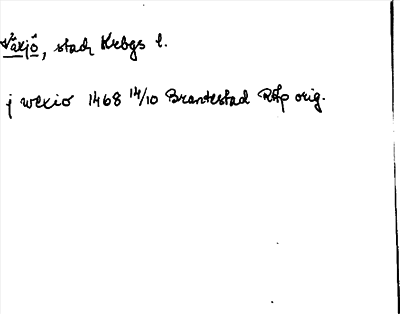 Växjö, stad Krbgs l.
j wexio 1468 14/10 Brantestad RAp orig.